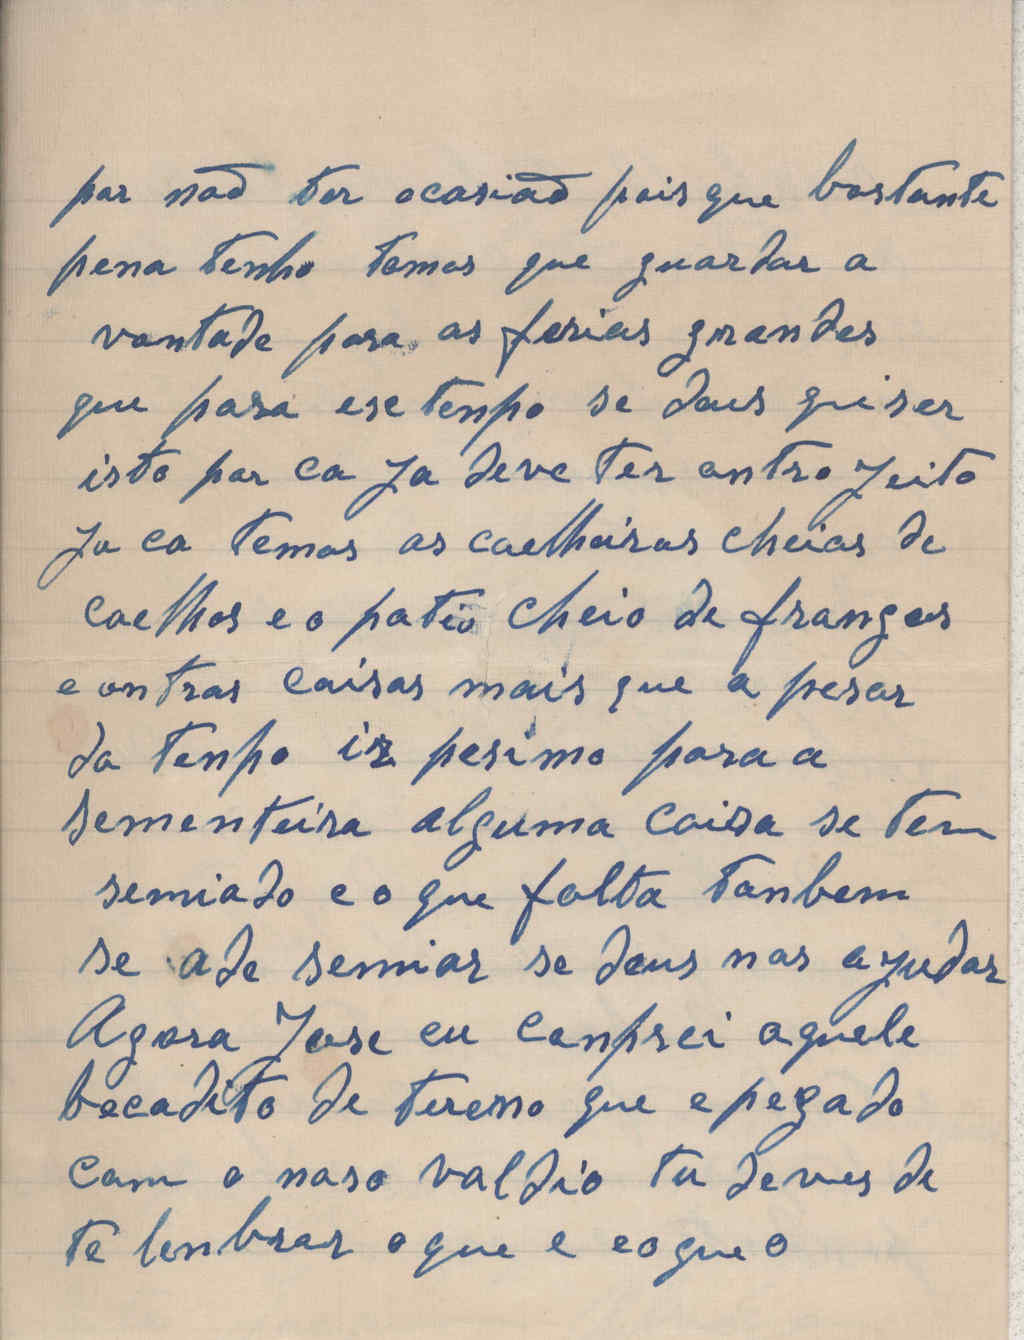 por não ter ocasião pois que bastante
pena tenho temos que guardar a
vontade para as ferias grandes
que para ese tenpo se deus quiser
isto por ca ja deve ter outro jeito
ja ca temos as coelheiras cheias de
coelhos e o patio cheio de frangos
e outras coisas mais que a pesar
do tenpo ir pesimo para a
sementeira alguma coisa se tem
semiado e o que falta tanbem
se ade semiar se deus nos ajudar
Agora Jose eu conprei aquele
becadito de tereno que e pegado
com o noso valdio tu deves de
te lenbrar o que e eo que o